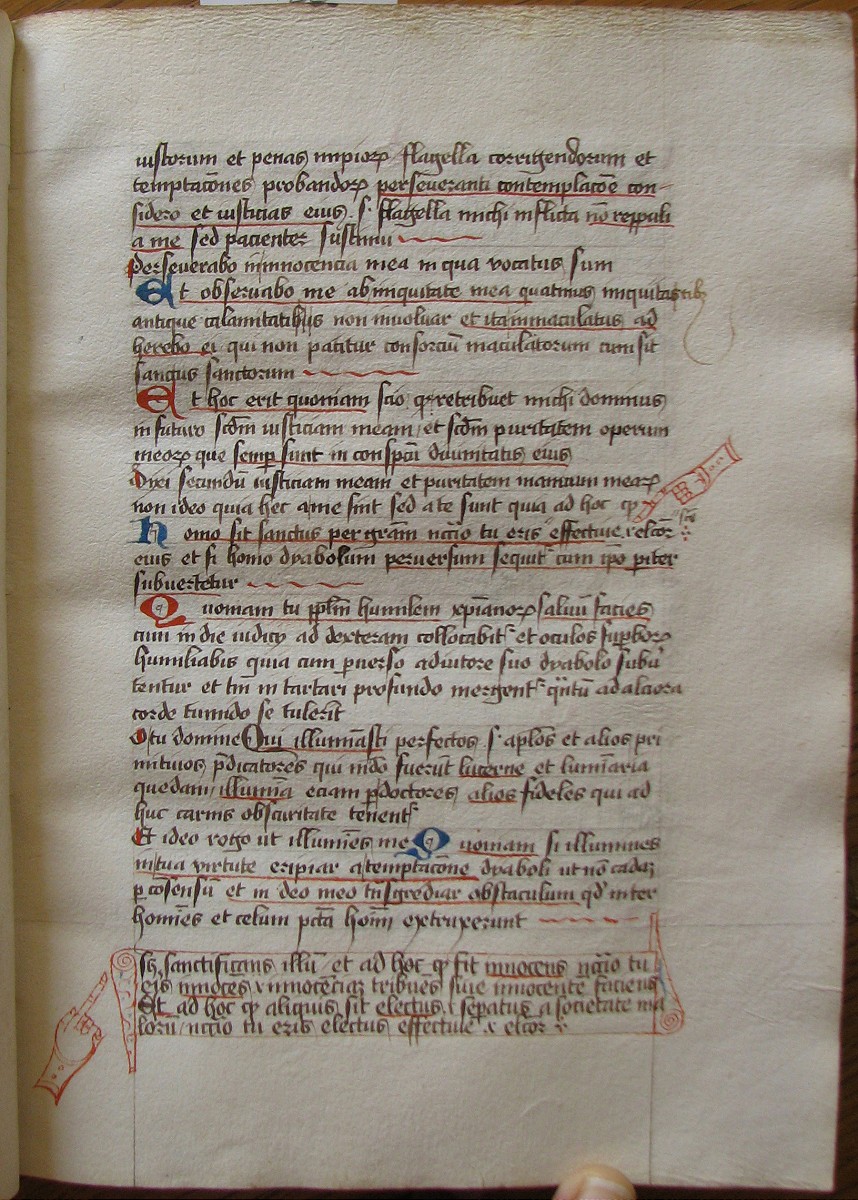 iustorum et penas impiorꝝ flagella corrigendorum et
temptacōnes probandorꝝ perseueranti contemplacōe con-
sidero et iusticias eius .s. flagella michi inflicta nō reppuli
a me sed pacienter sustinui
perseuerabo in innocencia mea in qua vocatus sum
Et obseruabo me ab iniquitate mea quatinus iniquitatibꝫ
antique calamitatis non inuoluar et ita immaculatus ad
herebo ei qui non patitur consorciū maculatorum cum sit
sanctus sanctorum
Et hoc erit quoniam scio ꝙ retribuet michi dominus
in futuro scdm iusticiam meam et scdm puritatem operum
meorꝝ que semp sunt in conspcū diuinitatis eius
Dixi secundū iusticiam meam et puritatem manuum mearꝝ
non ideo quia hec a me sint sed a te sunt quia ad hoc ꝙ
homo sit sanctus per grām tu eris effectiue
eius et si homo dyabolum peruersum sequit cum ipo piter
subuertetur
Quoniam tu pplm humilem xpianorꝝ saluū facies
cum in die iudicij ad dexteram collocabit et oculos supborꝝ
humiliabis quia cum puerso adiutore suo dyabolo subū
tentur et tm in tartari profundo mergent ad alciora
corde tumido se tulerit
O tu domine Qui illuminasti perfectos .s. aplos et alios pri
mitiuos pdicatores qui fuerūt lucerne et luminaria
quedam illumīa eciam pdoctores alios fideles qui ad
huc carnis obscuritate tenent
Et ideo rogo ut illumīes me Quoniam si illumines
in tua virtute eripiar a temptacōne dyaboli ut nō cadaꝫ
p cōsensū et in deo meo trāsgrediar obstaculum qd inter
homīes et celum pctā homī extruxerunt
sanctificans illū et ad hoc ꝙ sit innocens tu
eris innocēs innocenciaꝫ tribues siue innocente faciens
Et ad hoc ꝙ aliquis sit electus sepatus a societate ma
lorū tu eris electus effectiue